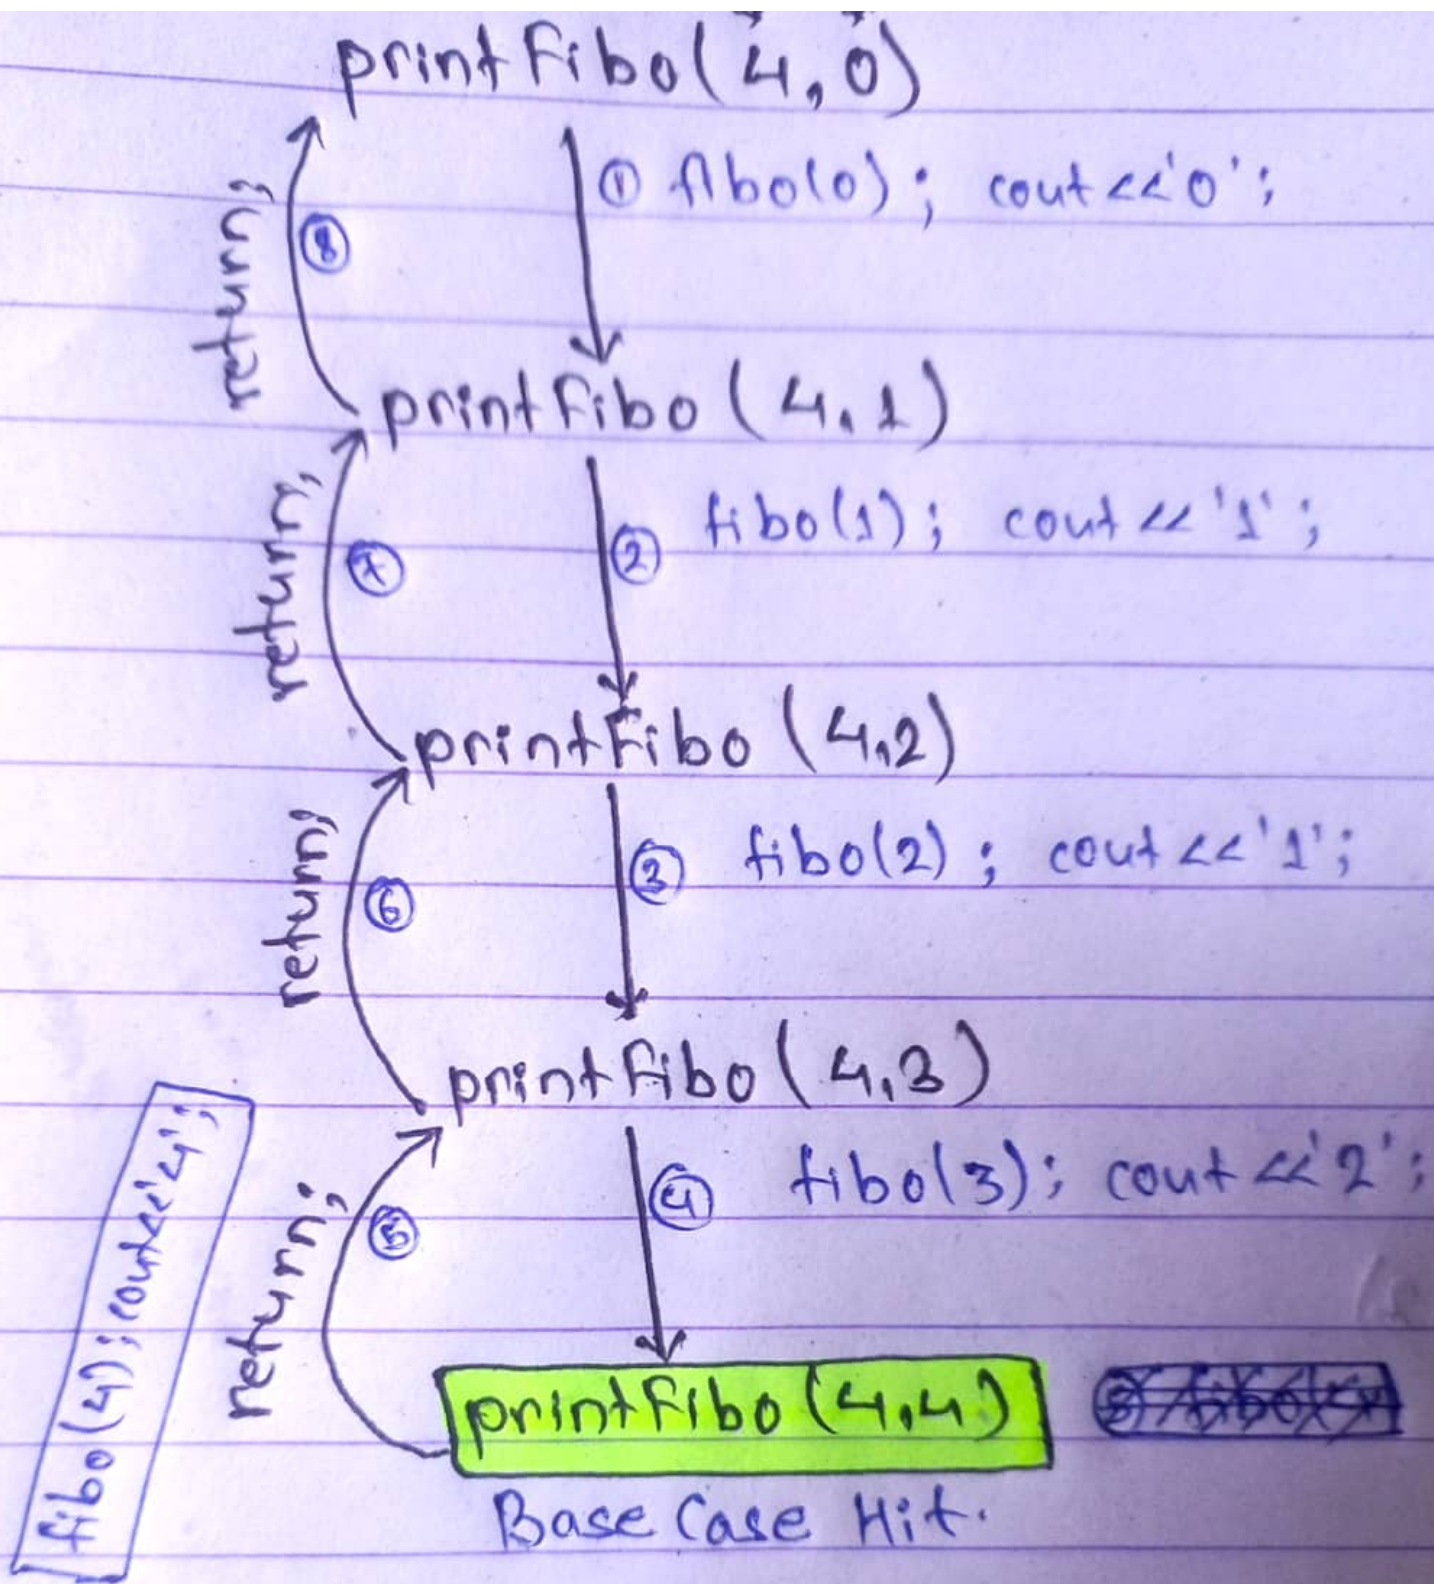 printFibo(4,0)
① fibo(0); cout<<'0';
return;
⑧
printFibo(4,1)
② fibo(1); cout<<'1';
return;
⑦
printFibo(4,2)
③ fibo(2); cout<<'1';
return;
⑥
printFibo(4,3)
④ fibo(3); cout<<'2';
return;
⑤
fibo(4); cout<<'4';
printFibo(4,4)
Base Case Hit.